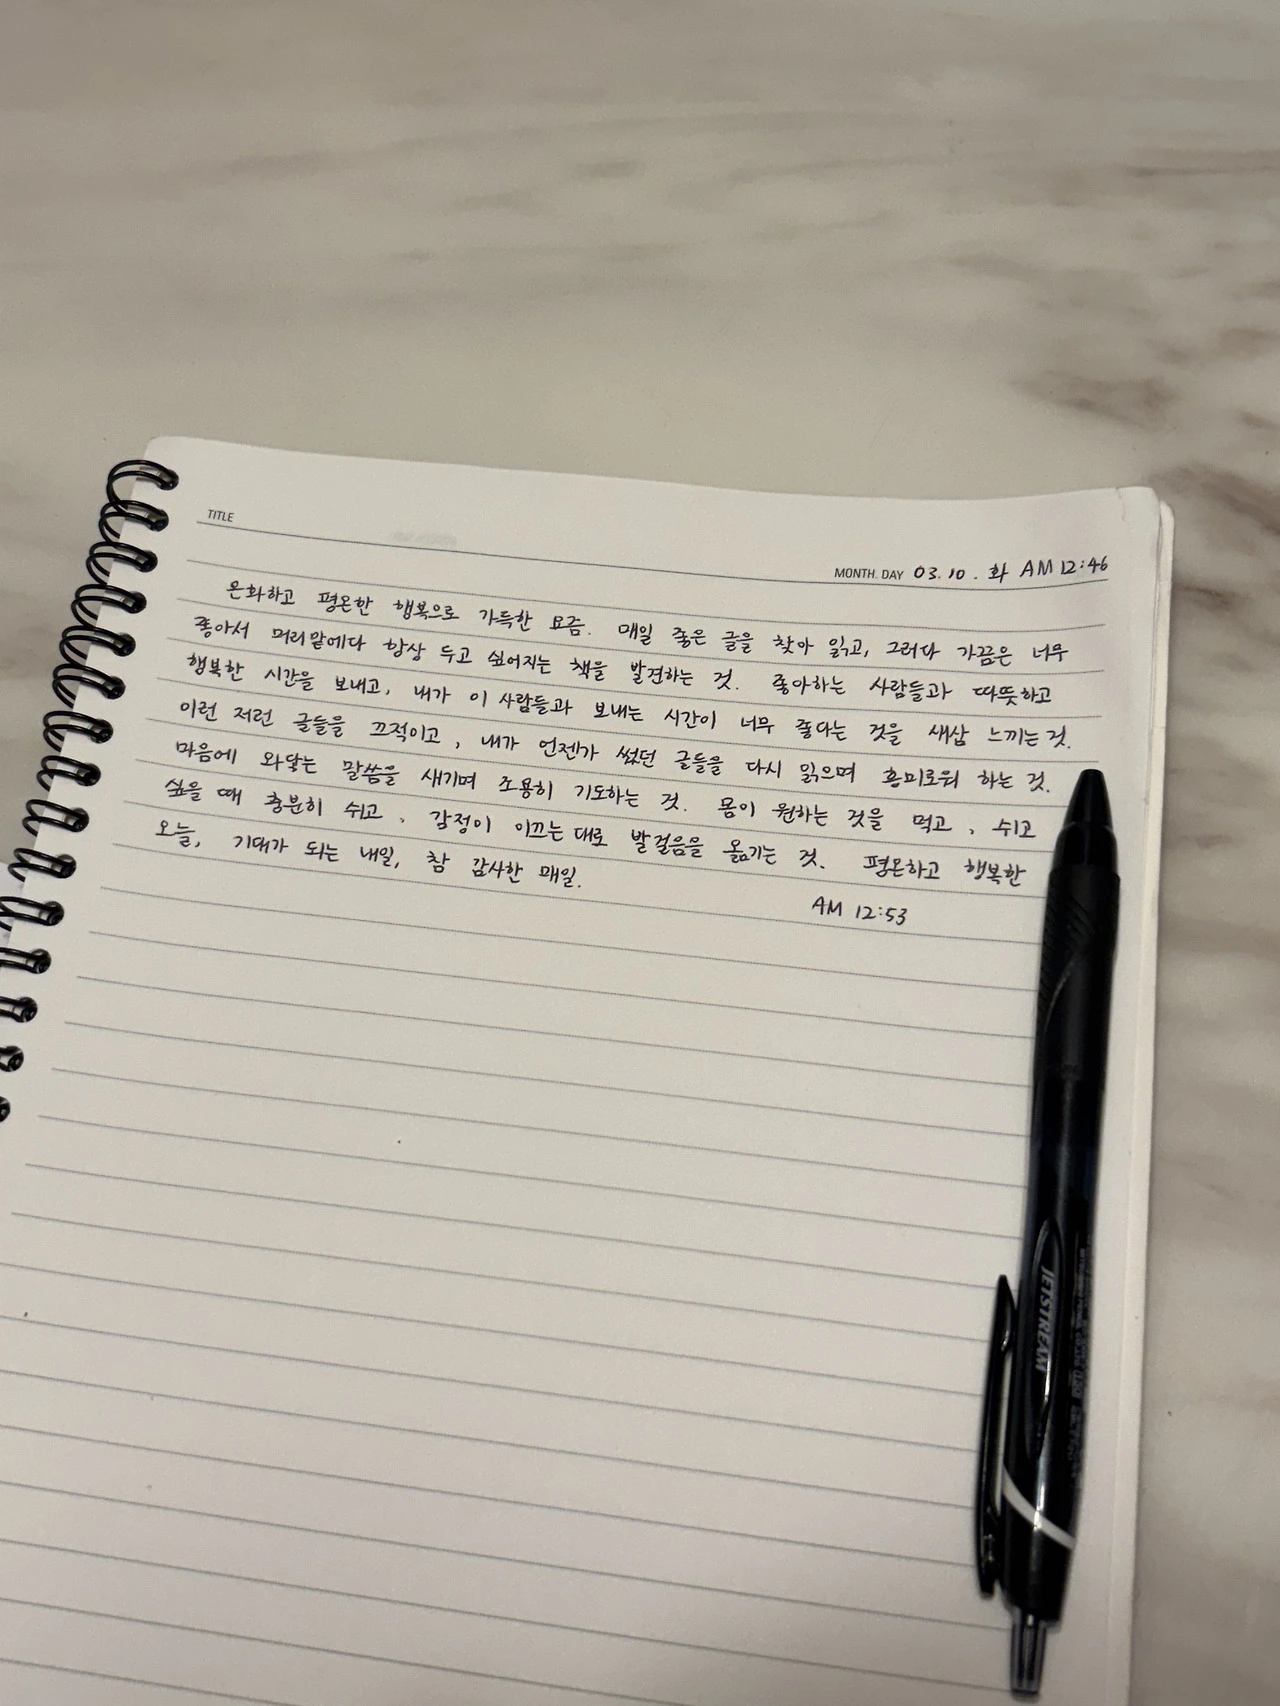 TITLE
MONTH. DAY 03. 10. 화 AM 12:46
온화하고 평온한 행복으로 가득한 요즘. 매일 좋은 글을 찾아 읽고, 그러다 가끔은 너무
좋아서 머리맡에다 항상 두고 싶어지는 책을 발견하는 것. 좋아하는 사람들과 따뜻하고
행복한 시간을 보내고, 내가 이 사람들과 보내는 시간이 너무 좋다는 것을 새삼 느끼는 것.
이런 저런 글들을 끄적이고, 내가 언젠가 썼던 글들을 다시 읽으며 흥미로워 하는 것.
마음에 와닿는 말씀을 새기며 조용히 기도하는 것. 몸이 원하는 것을 먹고, 쉬고
싶을 때 충분히 쉬고, 감정이 이끄는 대로 발걸음을 옮기는 것. 평온하고 행복한
오늘, 기대가 되는 내일, 참 감사한 매일.
AM 12:53
JETSTREAM